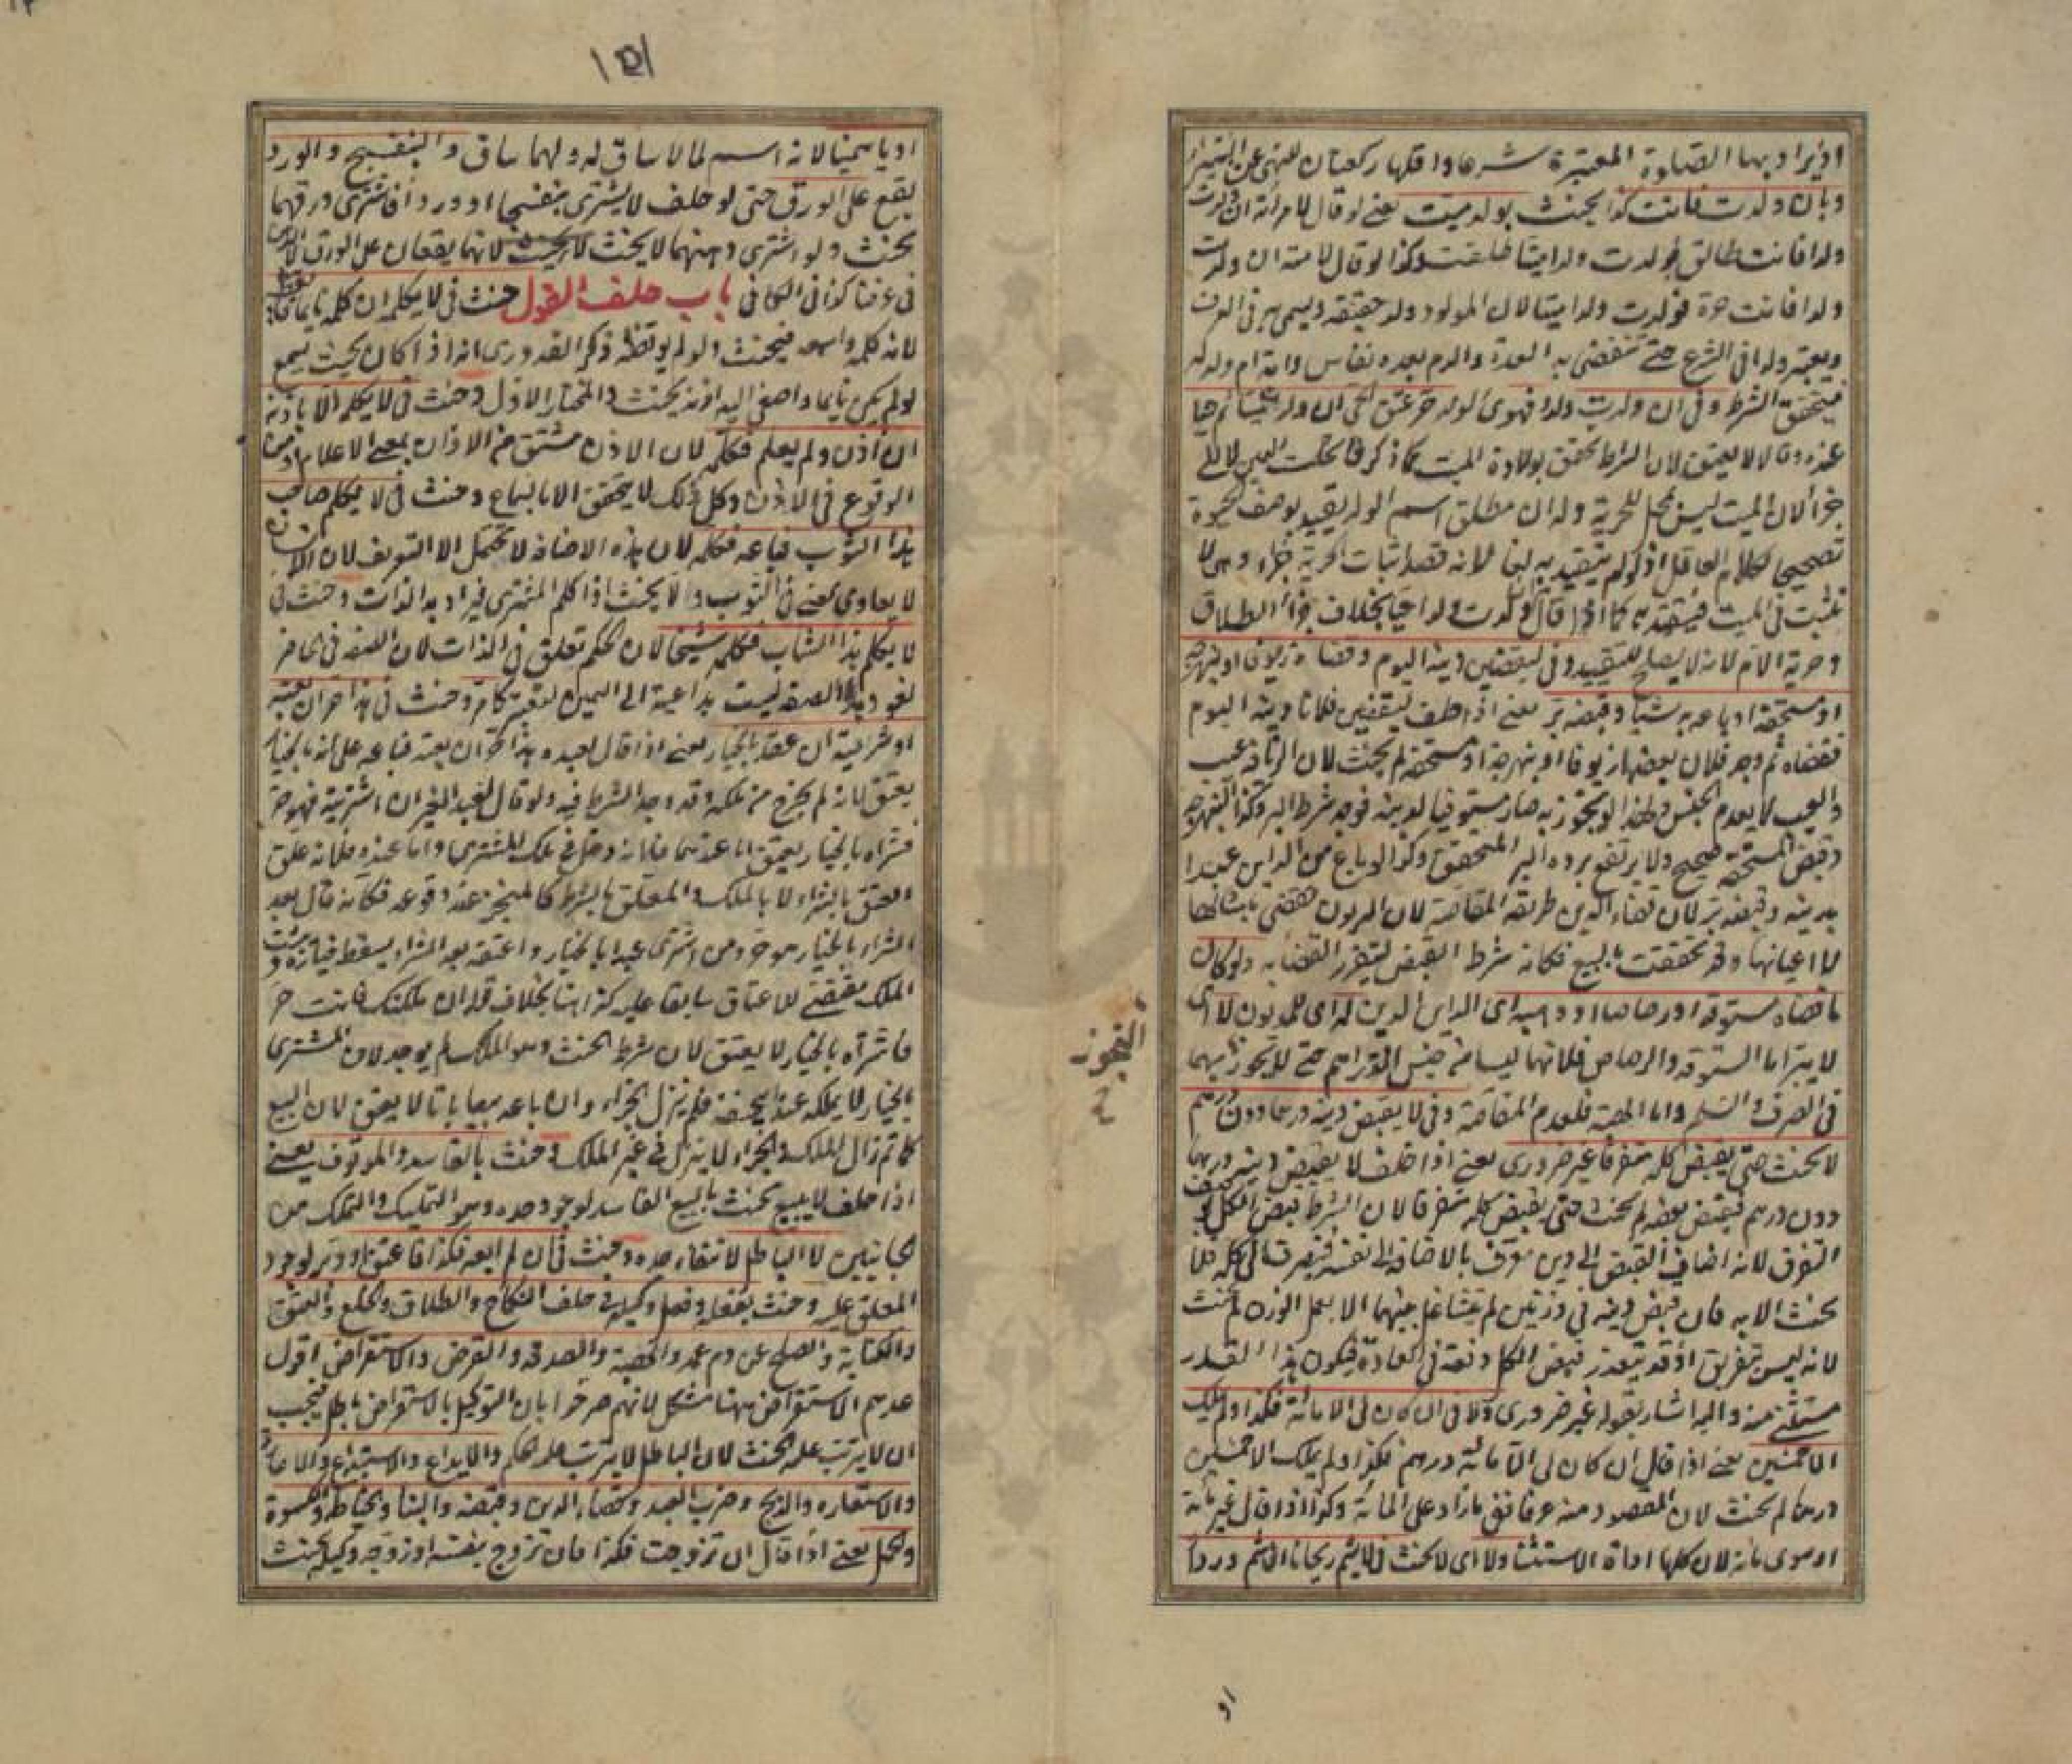 اذ يراد بها الصلوة المعتبرة شرعا واقلها ركعتان للنهي عن البتيراء
وبان ولدت فانت كذا يحنث بولد ميت يعني لو قال لامرأته ان ولدت
ولدا فانت طالق فولدت ولدا ميتا طلقت وكذا لو قال لامته ان ولدت
ولدا فانت حرة فولدت ولدا ميتا لان المولود ولد حقيقة ويسمى به في العرف
ويعتبر ولدا في الشرع حتى تنقضي به العدة والدم بعده نفاس وامه ام ولد له
فيتحقق الشرط وفي ان ولدت ولدا فهو اى الولد حر عتق الحى ان ولد ميتا ثم حيا
عنده وقالا لا يعتق لان الشرط تحقق بولادة الميت كما ذكر فانحلت اليمين لا الى
جزاء لان الميت ليس بمحل للحرية وله ان مطلق اسم الولد يقيد بوصف الحيوة
تصحيحا لكلام العاقل اذ لو لم يتقيد به لغا لانه قصد اثبات الحرية جزاء وهى لا
تثبت في الميت فيتقيد به كما اذا قال اذا ولدت ولدا حيا بخلاف جزاء الطلاق
وحرية الام لانه لا يصلح للتقييد وفي ليقضين دينه اليوم وقضاه زيوفا او نبهرجة
او مستحقة او باعه به شيئا وقبضه بر يعني اذا حلف ليقضين فلانا دينه اليوم
فقضاه ثم وجد فلان بعضها زيوفا او نبهرجة او مستحقة لم يحنث لان الزيافة عيب
والعيب لا يعدم الجنس ولهذا لو تجوز به صار مستوفيا لدينه فوجد شرط البر وكذا النبهرجة
وقبض المستحقة صحيح ولا يرتفع برده البر المتحقق وكذا لو باع من الداين عبدا
بدينه وقبضه بر لان قضاء الدين طريقه المقاصة لان الديون تقضى بامثالها
لا اعيانها وقد تحققت بالبيع فكانه شرط القبض ليتقرر القضاء به ولو كان
ما قضاه ستوقة او رصاصا او وهبه اى الداين الدين له اى للمديون لا اى
لا يبر اما الستوقة والرصاص فلانهما ليسا من جنس الدراهم حتى لا يجوز بهما
التجوز
في الصرف والسلم واما الهبة فلعدم المقاصة وفي لا يقبض دينه درهما دون درهم
لا يحنث حتى يقبض كله متفرقا غير ضرورى يعني اذا حلف لا يقبض دينه درهما
دون درهم فقبض بعضه لم يحنث حتى يقبض كله متفرقا لان الشرط قبض الكل بوصف
التفرق لانه اضاف القبض الى دين معرف بالاضافة الى نفسه فينصرف الى كله فلا
يحنث الا به فان قبض دينه في وزنتين لم يتشاغل بينهما الا بعمل الوزن لم يحنث
لانه ليس بتفريق اذ قد يتعذر قبض الكل دفعة في العادة فيكون هذا القدر
مستثنى منه واليه اشار بقوله غير ضرورى ولا في ان كان لى الا مائة فكذا ولم يملك
الا خمسين يعني اذا قال ان كان لى الا مائة درهم فكذا ولم يملك الا خمسين
درهما لم يحنث لان المقصود منه عرفا نفي ما زاد على المائة وكذا اذا قال غير مائة
او سوى مائة لان كلها اداة الاستثناء ولا اى لا يحنث في لا يشم ريحانا ان شم وردا
او
١٥١
او ياسمينا لانه اسم لما لا ساق له ولهما ساق والبنفسج والورد
يقع على الورق حتى لو حلف لا يشترى بنفسجا او وردا فاشترى ورقهما
يحنث ولو اشترى دهنهما لا يحنث لانهما يقعان على الورق لا الدهن
في عرفنا كذا في الكافي باب حلف القول حنث في لا يكلم ان كلمه نايما فايقظه
لانه كلمه واسمعه فيحنث ولو لم يوقظه ذكر القدورى انه اذا كان بحيث يسمع
لو لم يكن نايما واصغى اليه اذنه يحنث والمختار الاول وحنث في لا يكلم الا باذنه
ان اذن ولم يعلم فكلم لان الاذن مشتق من الاذان بمعنى الاعلام او من
الوقوع في الاذن وكل ذلك لا يتحقق الا بالسماع وحنث في لا يكلم صاحب
هذا الثوب فباعه فكلمه لان هذه الاضافة لا تحتمل الا التعريف لان الانسان
لا يعادى لمعنى في الثوب والا يحنث اذا كلم المشترى فيراد به الذات وحنث في
لا يكلم هذا الشاب فكلمه شيخا لان الحكم تعلق في الذات لان الصفة في الحاضر
لغو وهذه الصفة ليست بداعية الى اليمين لتعتبر كما مر وحنث في هذا حر ان بعته
او شريته ان عقد بالخيار يعني اذا قال لعبده هذا حر ان بعته فباعه على انه بالخيار
يعتق لانه لم يخرج من ملكه وقد وجد الشرط فيه ولو قال لعبد الغير ان اشتريته فهو حر
فشراه بالخيار يعتق اما عندهما فلانه دخل في ملك المشترى واما عنده فلانه علق
العتق بالشراء لا بالملك والمعلق بالشرط كالمنجز عند وقوعه فكانه قال بعد
الشراء بالخيار هو حر ومن اشترى عبدا بالخيار واعتقه بعد الشراء يسقط خياره ويثبت
الملك مقتضى للاعتاق سابقا عليه كذا هنا بخلاف قوله ان ملكتك فانت حر
فاشتراه بالخيار لا يعتق لان شرط الحنث وهو الملك لم يوجد لان المشترى
بالخيار لا يملكه عند ابي حنيفة فلم ينزل الجزاء وان باعه بيعا باتا لا يعتق لان البيع
كما تم زال الملك والجزاء لا ينزل في غير الملك وحنث بالفاسد والموقوف يعني
اذا حلف لا يبيع يحنث بالبيع الفاسد لوجود حده وهو التمليك والتملك من
الجانبين لا الباطل لانتفاء حده وحنث في ان لم ابعه فكذا فاعتق او دبر لوجود
المعلق عليه وحنث بفعله وفعل وكيله في حلف النكاح والطلاق والخلع والعتق
والكتابة والصلح عن دم عمد والهبة والصدقة والقرض والاستقراض اقول
عدهم الاستقراض ههنا مشكل لانهم صرحوا بان التوكيل بالاستقراض باطل فيجب
ان لا يترتب عليه الحنث لان الباطل لا يترتب عليه الحكم والايداع والاستيداع والاعارة
والاستعارة والذبح وضرب العبد وقضاء الدين وقبضه والبناء والخياطة والكسوة
والحمل يعني اذا قال ان تزوجت فكذا فان تزوج بنفسه او زوجه وكيله يحنث